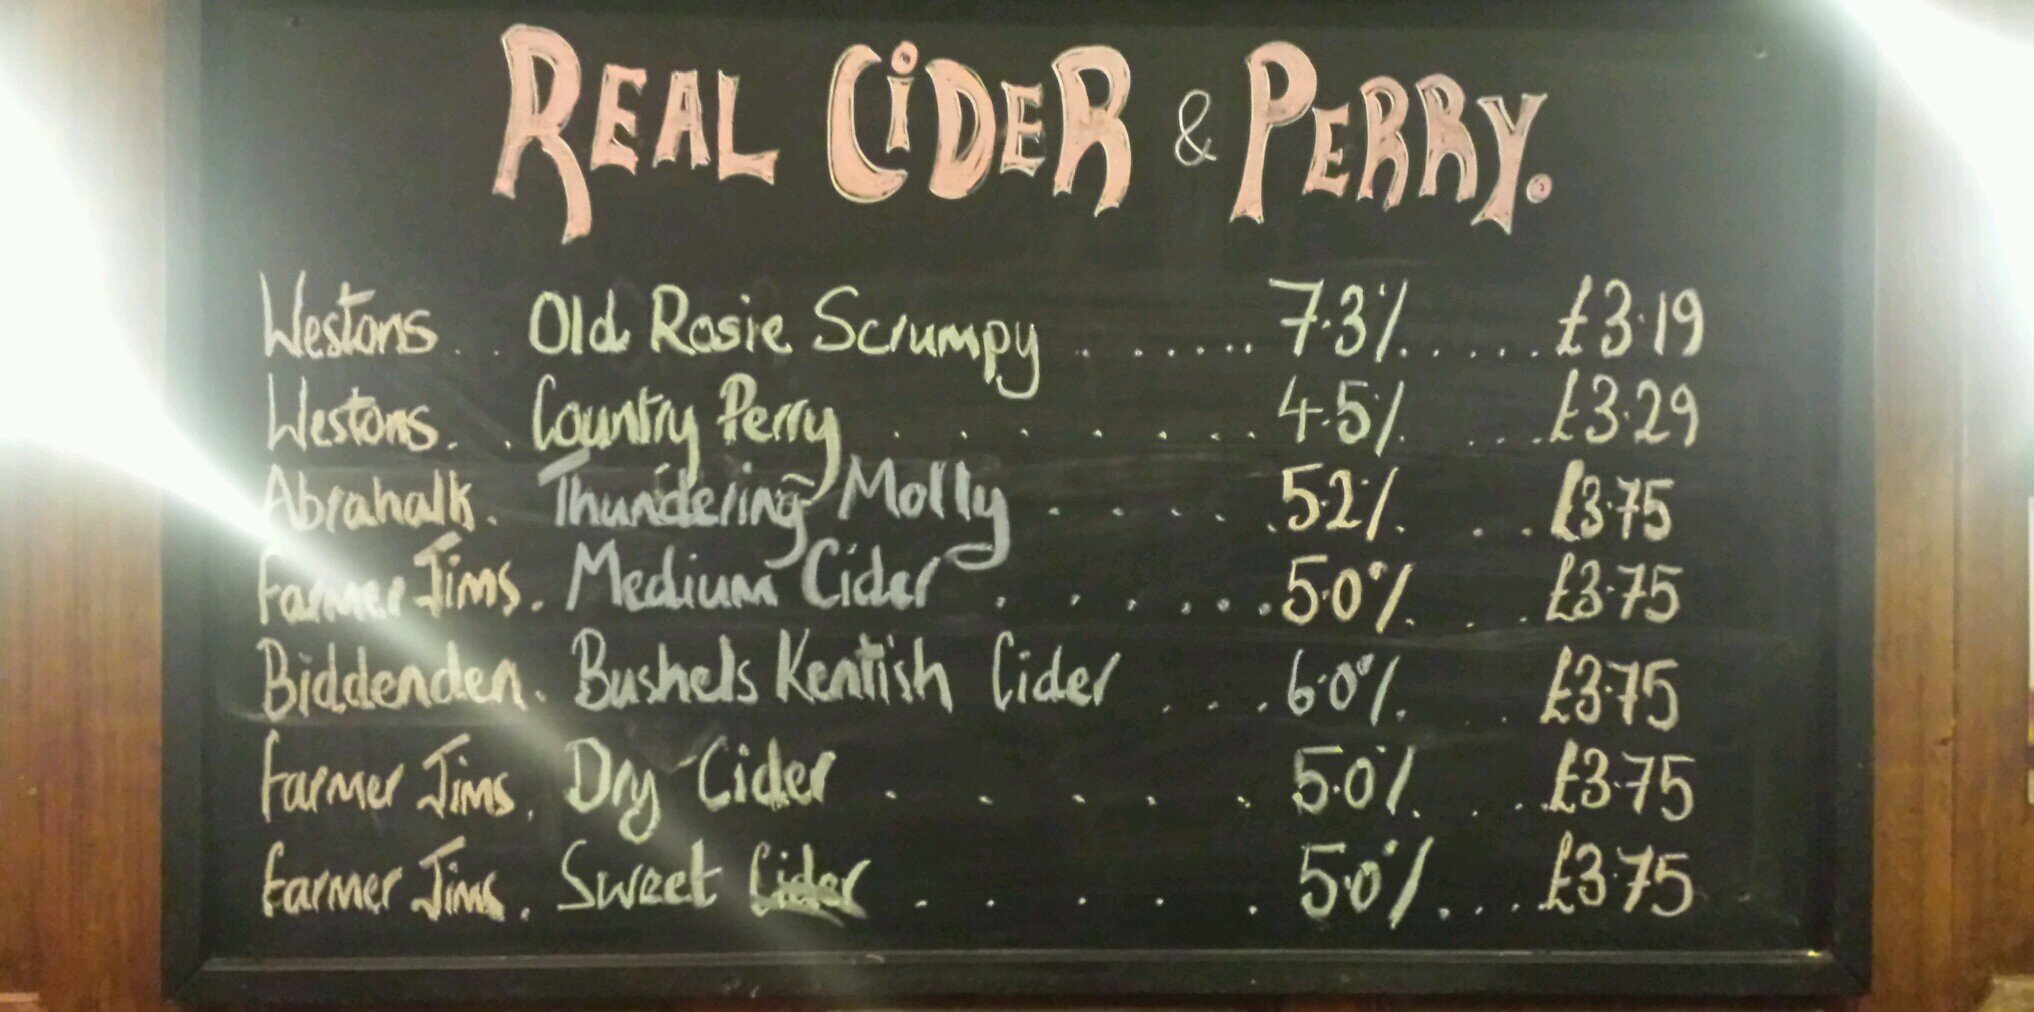 REAL CiDER & PERRY.
Westons . . Old Rosie Scrumpy . . . . . . . 7.3% . . . . . . £3.19
Westons . . Country Perry . . . . . . . . 4.5% . . . . £3.29
Abrahalk . Thundering Molly . . . . . 5.2% . . . £3.75
Farmer Jims . Medium Cider . . . . . . . 5.0% . . . £3.75
Biddenden . Bushels Kentish Cider . . . 6.0% . . . £3.75
Farmer Jims . Dry Cider . . . . . 5.0% . . . . £3.75
Farmer Jims . Sweet Cider . . . . . 5.0% . . . . £3.75